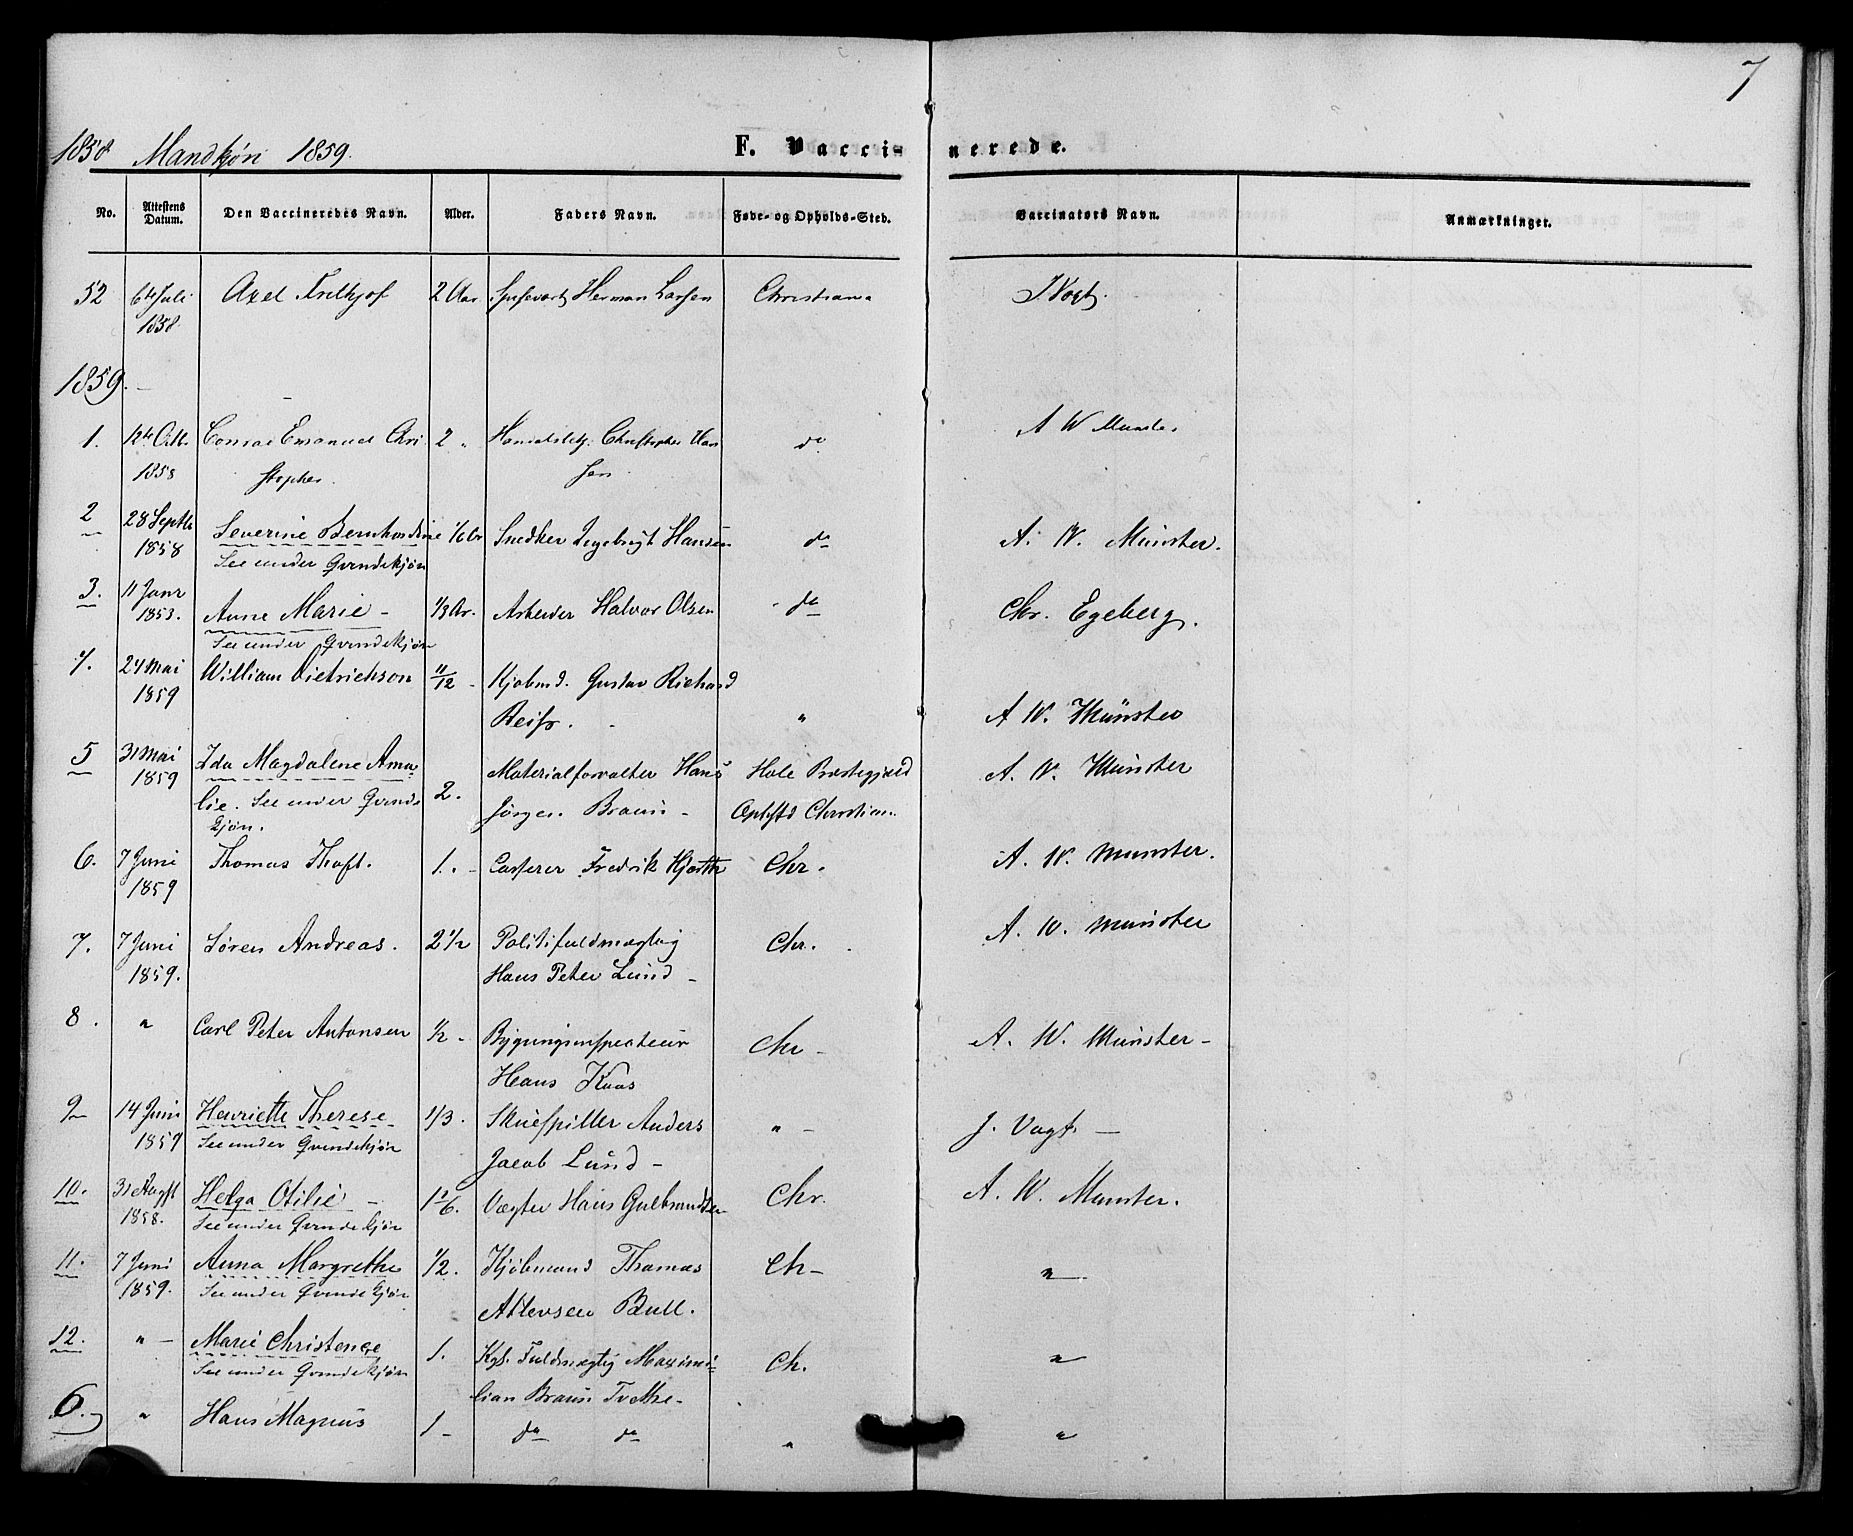 7
1858 Mandkjön 1859.
F. Vaccinerede.
No. Attestens Datum. Den Vaccineredes Navn. Alder. Faders Navn. Føde- og Opholds-Sted. Vaccinators Navn. Anmærkninger.
52 6te Juli Axel Fridtjof 2 Aar Herman Larsen Christiania J Vogt.
1858
1859.
1. 12te Octb. Conrad Emanuel Chri 2 " Christopher Han do A W Munster
1858 stopher sen
2 28 Septb Severine Bernhardine 1/6 Ar Snedker Ingebrigt Hansen do A. W. Münster.
1858 See under Qvindekjøn
3. 11 Janr Anne Marie - 1/3 Ar. Arbeider Halvor Olsen do Chr. Egeberg.
1853. See under Qvindekjøn
4. 24 Mai William Dietrichson 11/12 - Kjøbmd. Gustav Richard
1859 Reiss. " A W. Münster
5 31 Mai Ida Magdalene Ama 2. Materialforvalter Hans Hole Præstegjæld A. W. Münster
1859 lie. See under Qvinde Jörgen Braun - Ophstd Christian
kjøn.
6. 7 Juni Thomas Thaft. 1. - Casserer Fredrik Hjorth Chr. A. W. Munster.
1859
7. 7 Juni Sören Andreas. 2 1/2 Politifuldmægtig Chr. A. W. Munster
1859. Hans Peter Lund -
8. " Carl Peter Antonsen 1/2 - Bygningsinspecteur Chr - A. W. Munster -
Hans Kaas
9 14 Juni Henriette Therese 1/3. Skuespiller Anders " - J. Vogt. —
1859 See under Qvindekjön Jacob Lund -
10. 31 Augst Helga Otilie - 1 2/6. Vægter Hans Gulbrandsen Chr. A. W. Munster.
1858. See under Qvindekjön
11. 7 Juni Anna Margrethe 1/2. Kjøbmand Thomas Ch - "
1859. See under Qvindekjön Bull.
12. " - Marie Christence 1. Kgl. Fuldmægtig Maximi- Ch. "
See under Qvindekjön lian Braun Tvethe -
6. " Hans Magnus 1 - do do " "